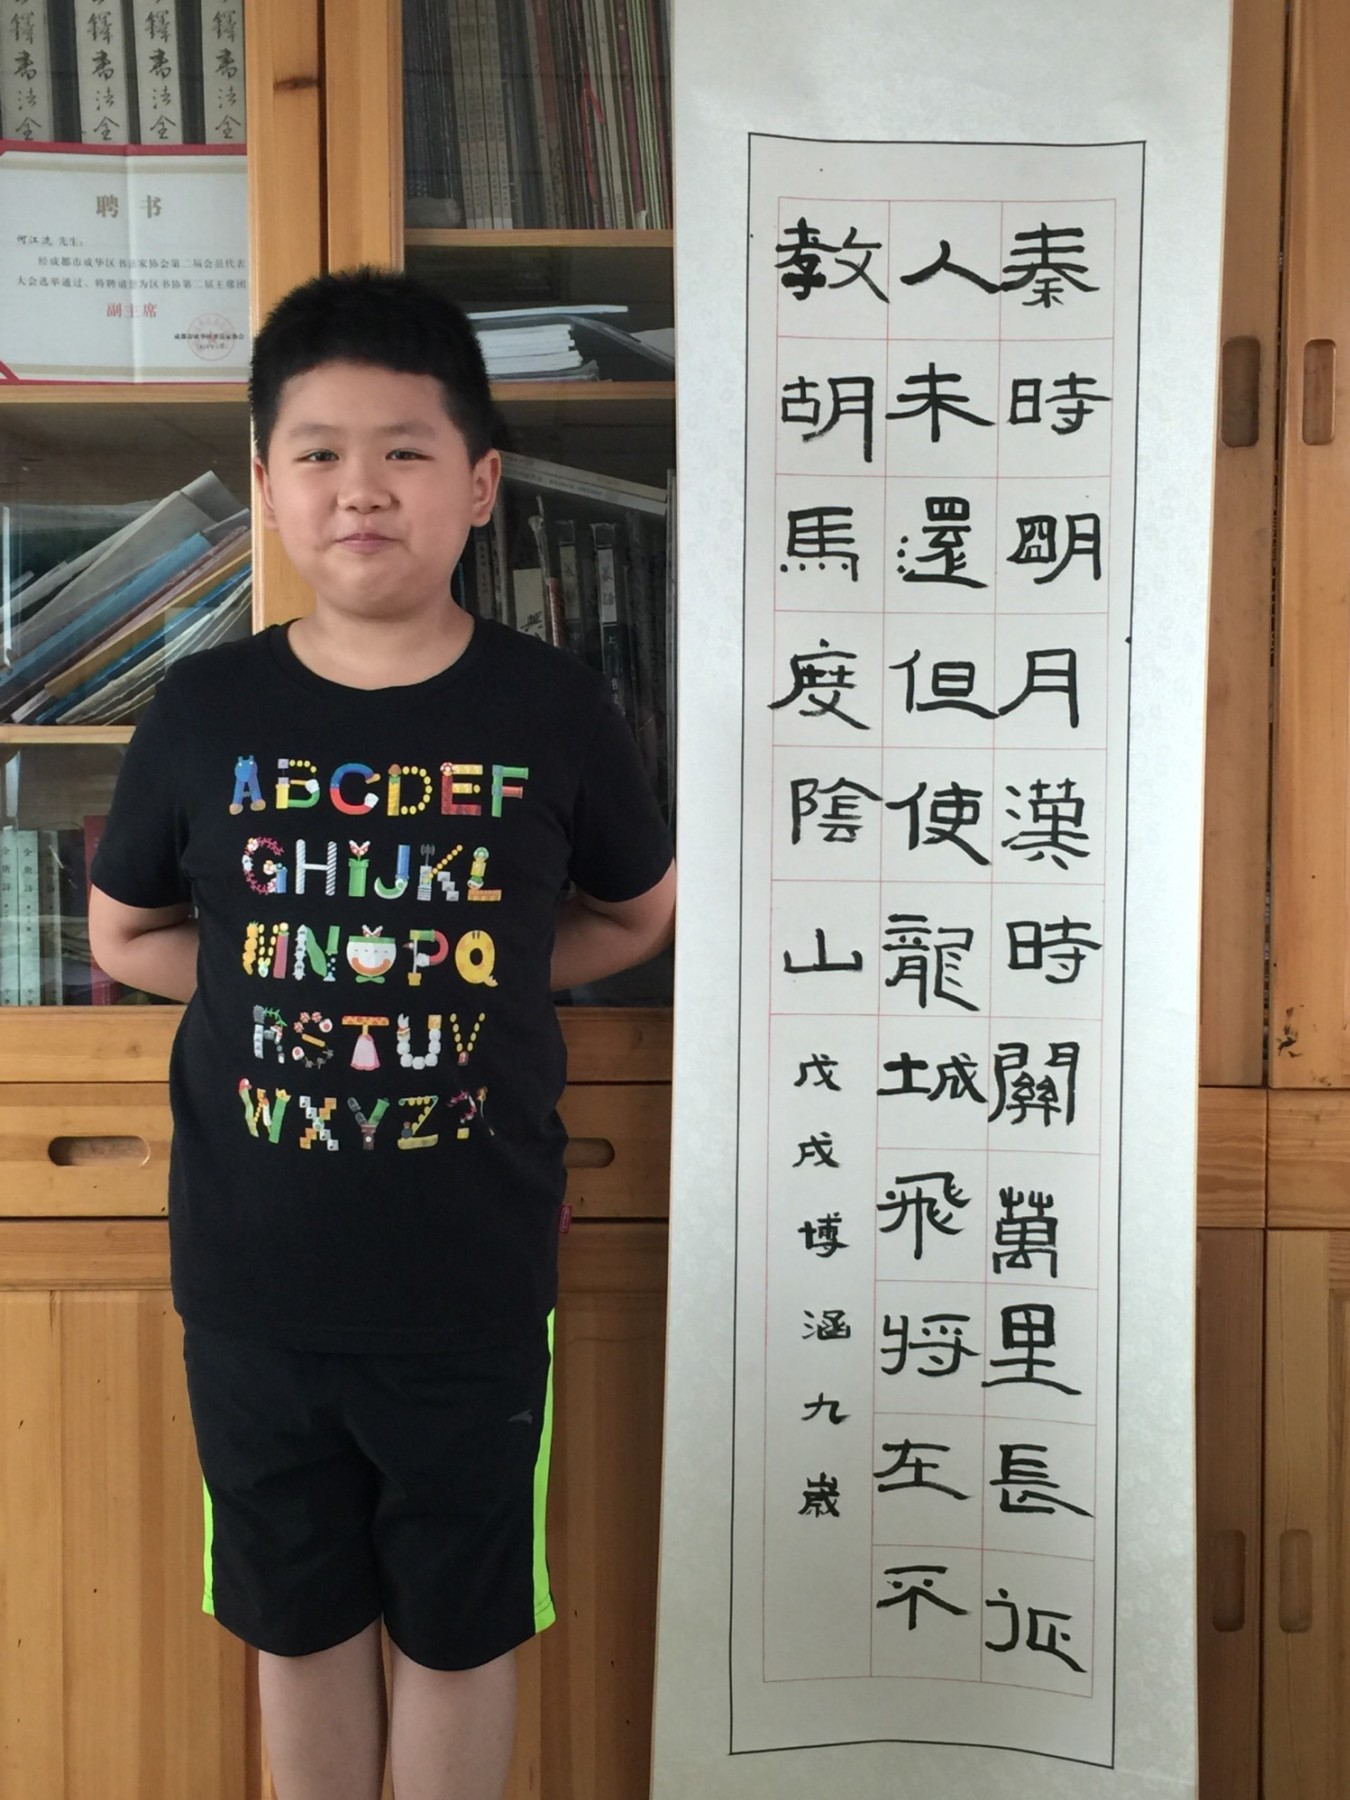 鐸書法全
鐸書法全
鐸書法全
鐸書法全
聘书
先生:
经成都市成华区书法家协会第二届会员代表
大会选举通过、特聘请您为区书协第二届主席团
副主席
成都市成华区书法家协会
ABCDEF
GHIJKL
MNOPQ
RSTUV
WXYZ?!
秦時明月漢時關萬里長征
人未還但使龍城飛將在不
教胡馬度陰山
戊戌博涵九歲